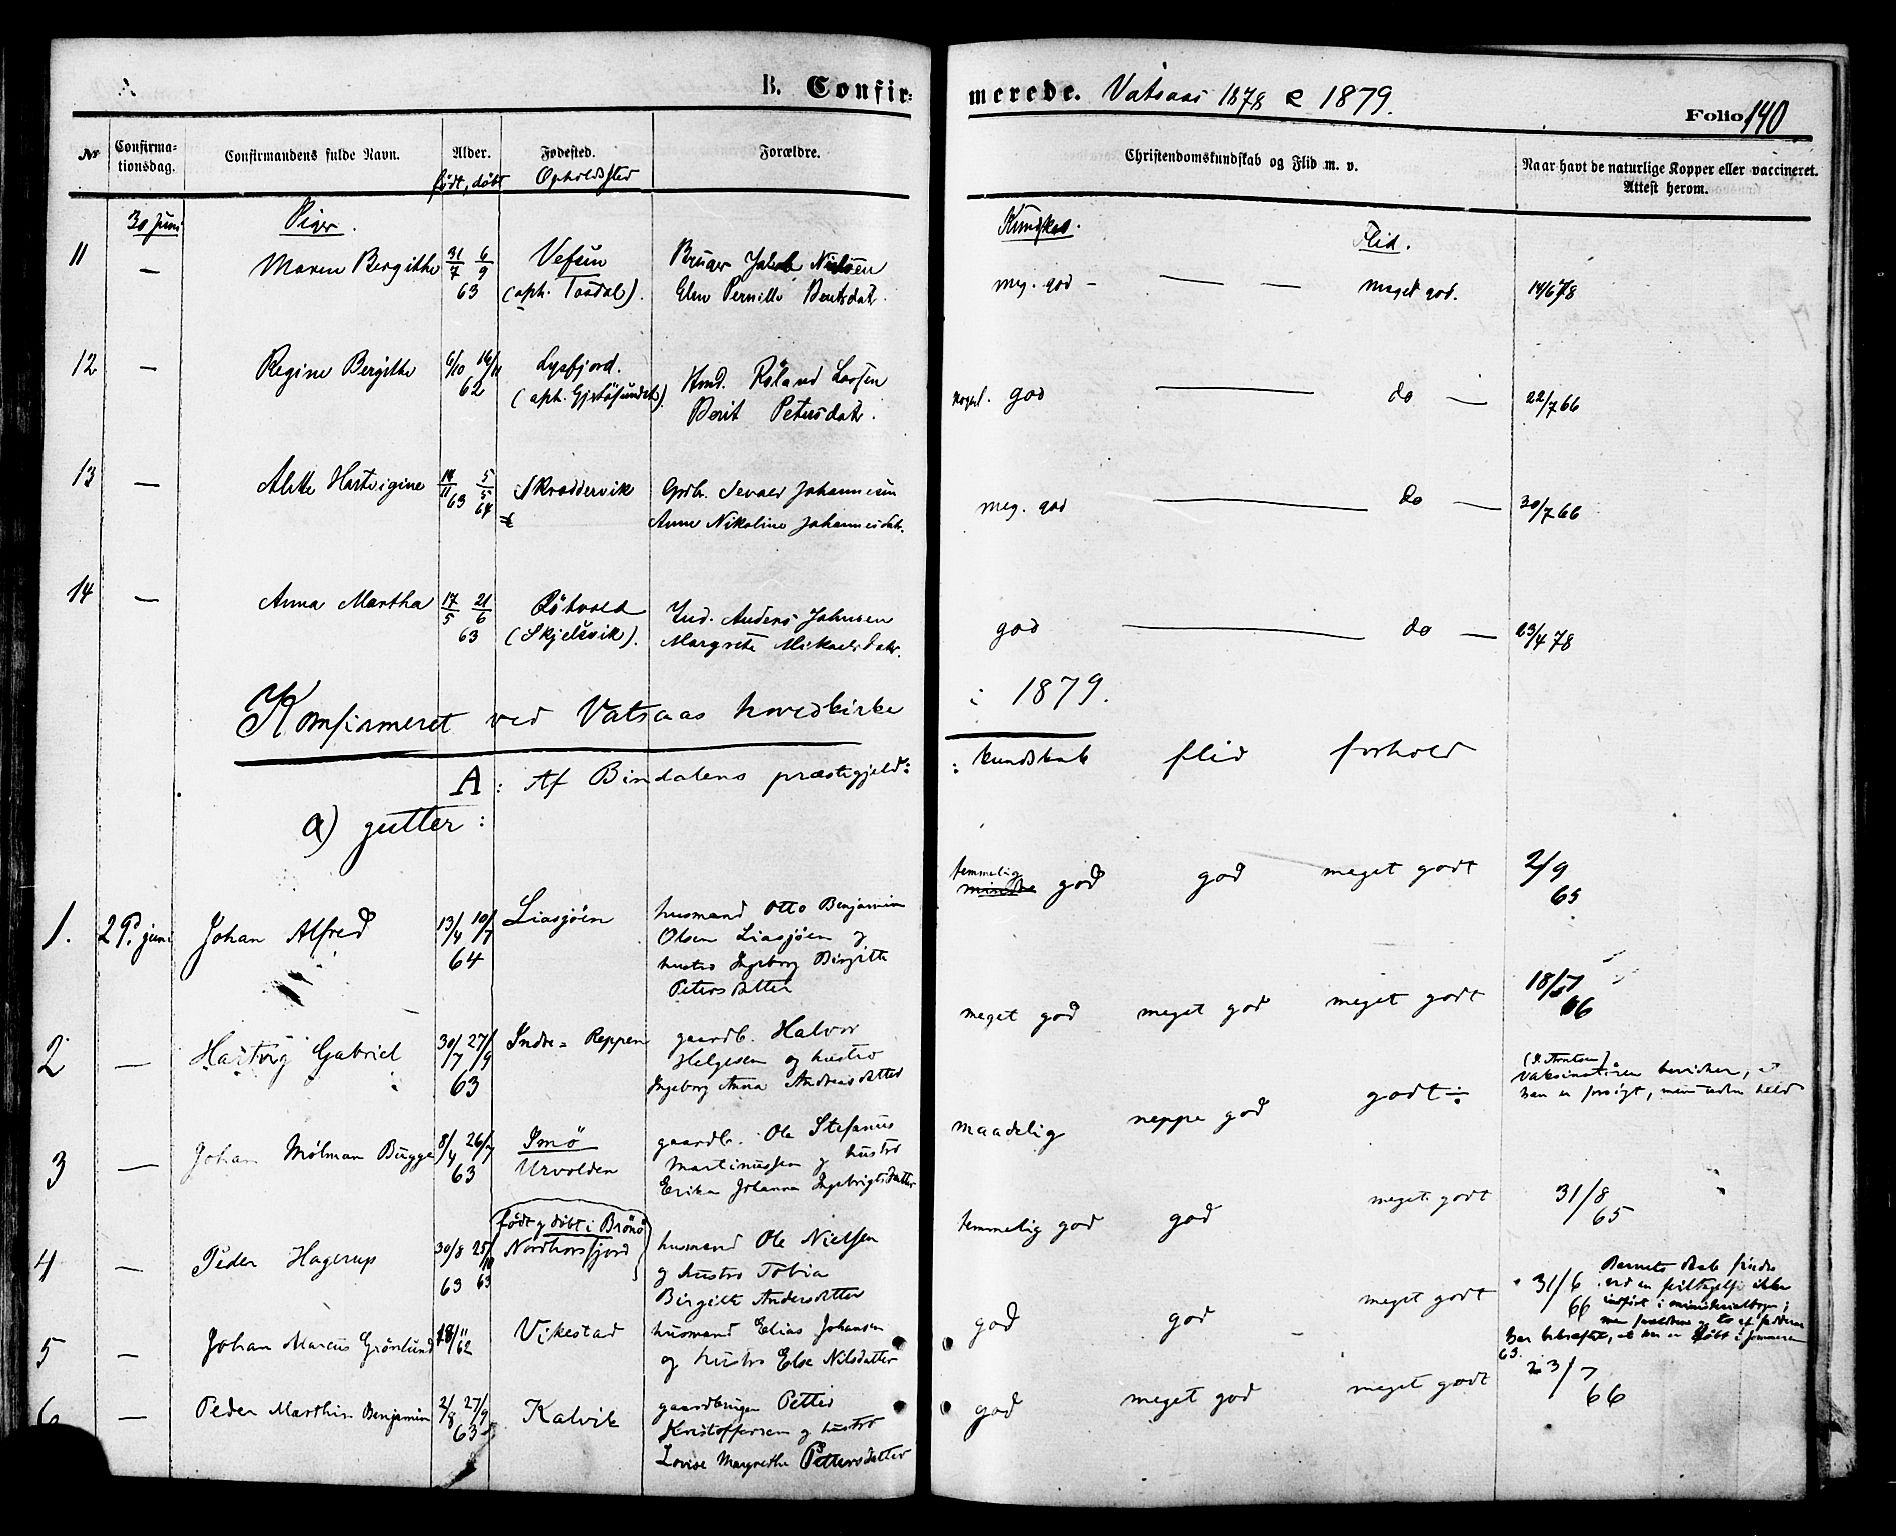 B. Confir- merede. Vatsaas 1878 & 1879.
Folio 140
No Confirma- tionsdag. Confirmandens fulde Navn. Alder. født, døbt Fødested. Opholdssted Forældre. Christendomskundskab og Flid m. v. Naar havt de naturlige Kopper eller vaccineret. Attest herom.
30 Juni Piger. Kundskab. Flid.
11 — Maren Bergithe 31/7 6/9 63 Vefsn (oph. Tosdal). Bruger Jakob Nielsen
Elen Pernille Bentsdat. meg. god — — — meget god. 14/6 78
12 — Regine Bergithe 6/10 16/11 62 Lysfjord. (oph. Gjetøsundet). Hmd. Røland Larsen
Berit Petersdatr. noget. god — do — 22/7 66
13 — Alette Hartvigine 14/11 63 5/5 64 Skroddervik Gdbr. Sevald Johannesen
Anne Nikoline Johannesdatr. meg. god — do — 30/7 66
14 — Anna Martha 17/5 21/6 63 Røtvold (Skjelsvik). Ind. Anders Johnsen
Margrete Mikaelsdatr. god — do — 23/4 78
Konfirmeret ved Vatsaas hovedkirke i 1879.
A: Af Bindalens præstegjeld: : kundskab flid forhold
a) gutter:
1. 29. juni Johan Alfred 13/4 10/7 64 Liasjøen husmand Otto Benjamin
Olsen Liasjøen og
hustro Ingeborg Birgitte
Petersdatter temmelig mindre god god meget godt 2/9 65
2 — Hartvig Gabriel 30/7 27/9 63 Indre=Reppen gaardb. Halvor
Helgesen og hustro
Ingeborg Anna Andreasdatter meget god meget god meget godt 18/7 66
3 — Johan Mølman Bugge 8/4 26/7 63 Imø Urvolden gaardb. Ole Stefanus
Martinussen og hustro
Erika Johanna Ingebrigtsdatter maadelig neppe god godt÷
Vaksinatøren bevidner, at
han er forsøgt, men uden held
4 — Peder Hagerup 30/8 63 25/10 63 født og døbt i Brønø Nordhorsfjord husmand Ole Nielsen
og hustro Tobia
Birgitte Andersdatter temmelig god god meget godt 31/8 65
5 — Johan Marcus Grønlund 18/11 62 Vikestad husmand Elias Johansen
og hustro Else Nilsdatter god god meget godt 31/6 66
Barnets daab findes
ved en feiltagelse ikke
indført i ministerialbogen;
men forældrene og to af fadderne
har bekræftet, at han er døbt i sommeren
63.
6 — Peder Marthin Benjamin 2/8 27/9 63 Kalvik gaardbruger Petter
Kristoffersen og hustro
Lovise Margrethe Pettersdatter god meget god meget godt 23/7 66